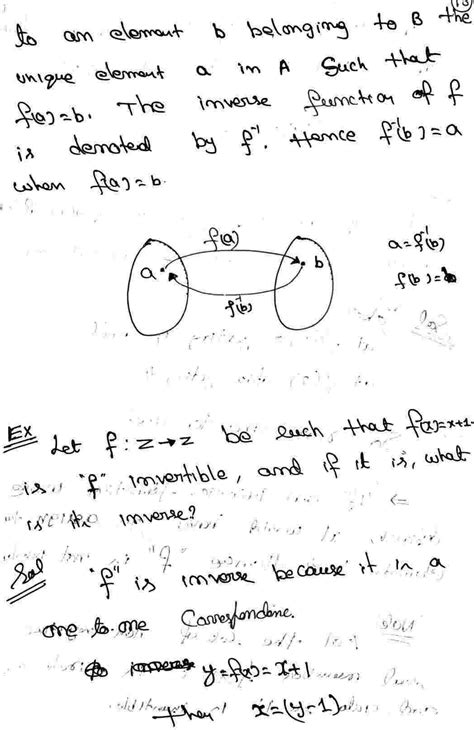 13
to an element b belonging to B the
unique element a in A Such that
f(a)=b. The inverse function of f
is denoted by f⁻¹. Hence f⁻¹(b)=a
when f(a)=b.
f(a)
a
b
f⁻¹(b)
a=f⁻¹(b)
f(b)=
Ex Let f:Z→Z be such that f(x)=x+1.
is "f" invertible, and if it is, what
is its inverse?
Sol "f" is inverse because it in a
one to one Correspondence.
y=f(x)=x+1
then x=(y-1)